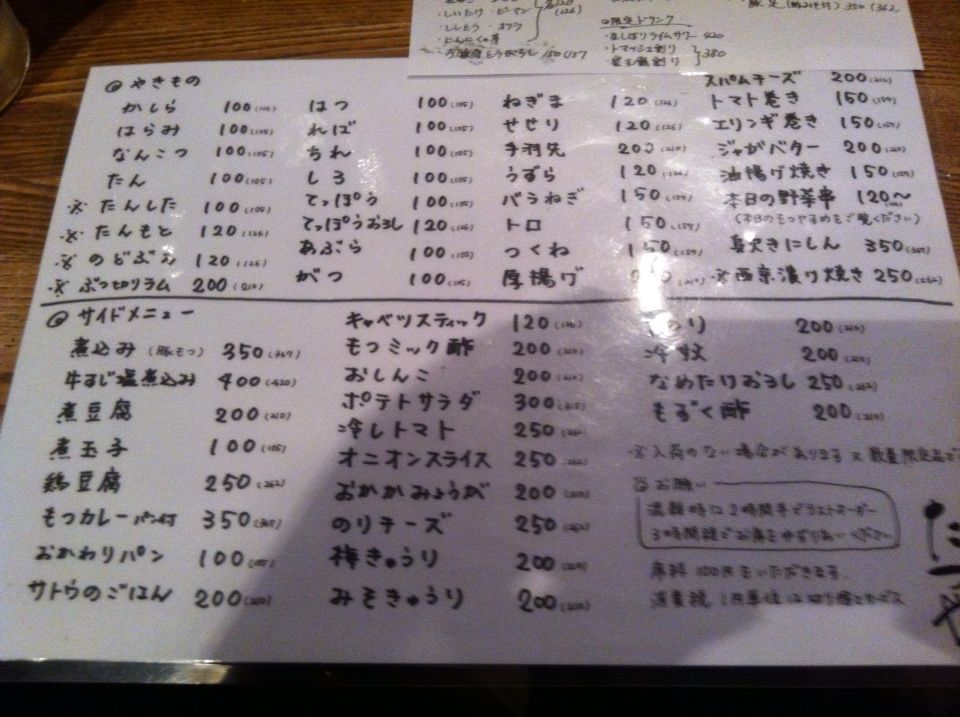 ・しいたけ・ピーマン
(126)
・ししとう・オクラ
・にんにくの芽
150(157
350(362
◎限定ドリンク
・生しぼりライムサワー 420
・トマッシュ割り
380
◎やきもの
かしら 100(105)
はらみ 100(105)
なんこつ 100(105)
たん 100(105)
※たんした 100(105)
※たんもと 120(126)
※のどぶえ 120(126)
※ぶつ切りラム 200(210)
はつ 100(105)
ればー 100(105)
ちれ 100(105)
しろ 100(105)
てっぽう 100(105)
てっぽうおろし 120(126)
あぶら 100(105)
がつ 100(105)
ねぎま 120(126)
せせり 120(126)
手羽先 200(210)
うずら 120(126)
バラねぎ 150(157)
トロ 150(157)
つくね 150(157)
厚揚げ (210)
スパムチーズ 200(210)
トマト巻き 150(157)
エリンギ巻き 150(157)
じゃがバター 200(210)
油揚げ焼き 150(157)
本日の野菜串 120〜
(本日のもつやきめもをご覧ください)
身欠きにしん 350(367)
※西京漬け焼き 250(262)
◎サイドメニュー
煮込み(豚もつ) 350(367)
牛すじ塩煮込み 400(420)
煮豆腐 200(210)
煮玉子 100(105)
鶏豆腐 250(262)
もつカレーパン付 350(367)
おかわりパン 100(105)
サトウのごはん 200(210)
キャベツスティック 120(126)
もつミック酢 200(210)
おしんこ 200(210)
ポテトサラダ 300(315)
冷しトマト 250(262)
オニオンスライス 250(262)
おかかみょうが 200(210)
のりチーズ 250(262)
梅きゅうり 200(210)
みそきゅうり 200(210)
のり 200(210)
冷奴 200(210)
なめたけおろし 250(262)
もずく酢 200(210)
※入荷のない場合があります ※数量限定品で
お願い
混雑時は2時間半でラストオーダー
3時間程でお席をゆずりあいください
席料100円をいただきます。
消費税 1円単位は切り捨てサービス